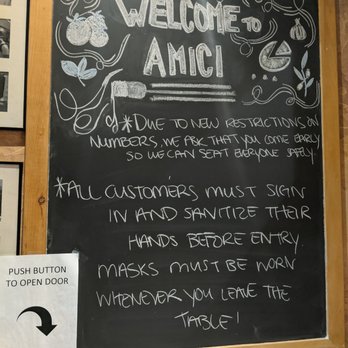 WELCOME TO
AMICI
*DUE TO NEW RESTRICTIONS ON
NUMBERS, WE ASK THAT YOU COME EARLY
SO WE CAN SEAT EVERYONE SAFELY.
*ALL CUSTOMERS MUST SIGN
IN AND SANITIZE THEIR
HANDS BEFORE ENTRY
MASKS MUST BE WORN
WHENEVER YOU LEAVE THE
TABLE!
PUSH BUTTON
TO OPEN DOOR